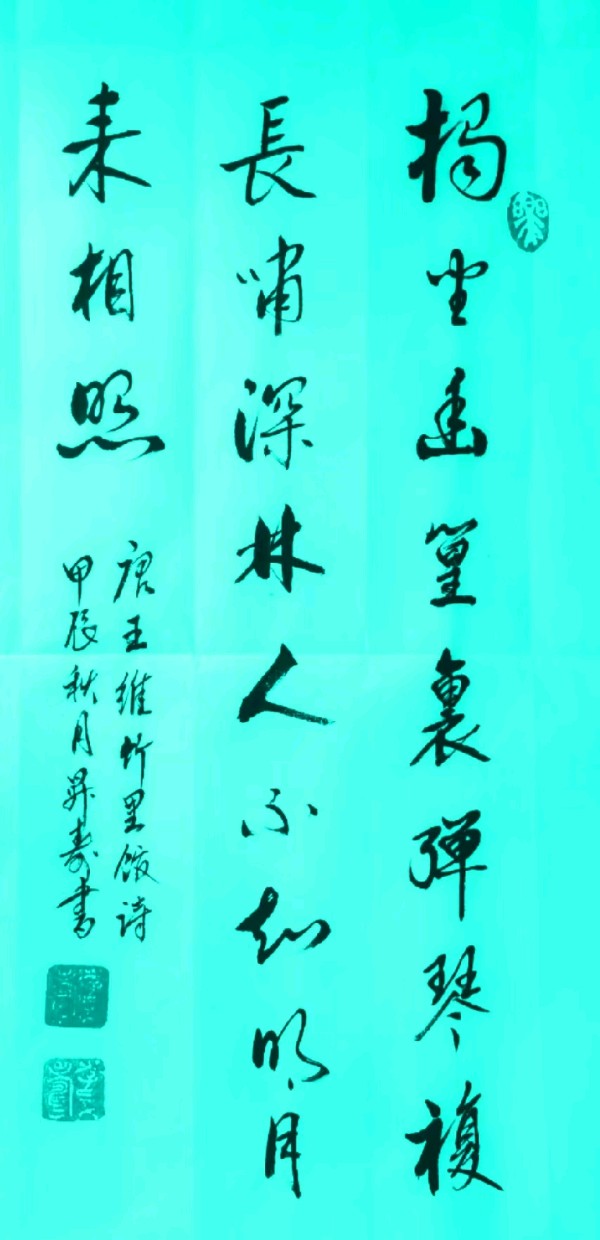 獨坐幽篁裏彈琴複
長嘯深林人不知明月
来相照
唐王維竹里館詩
甲辰秋月昇壽書